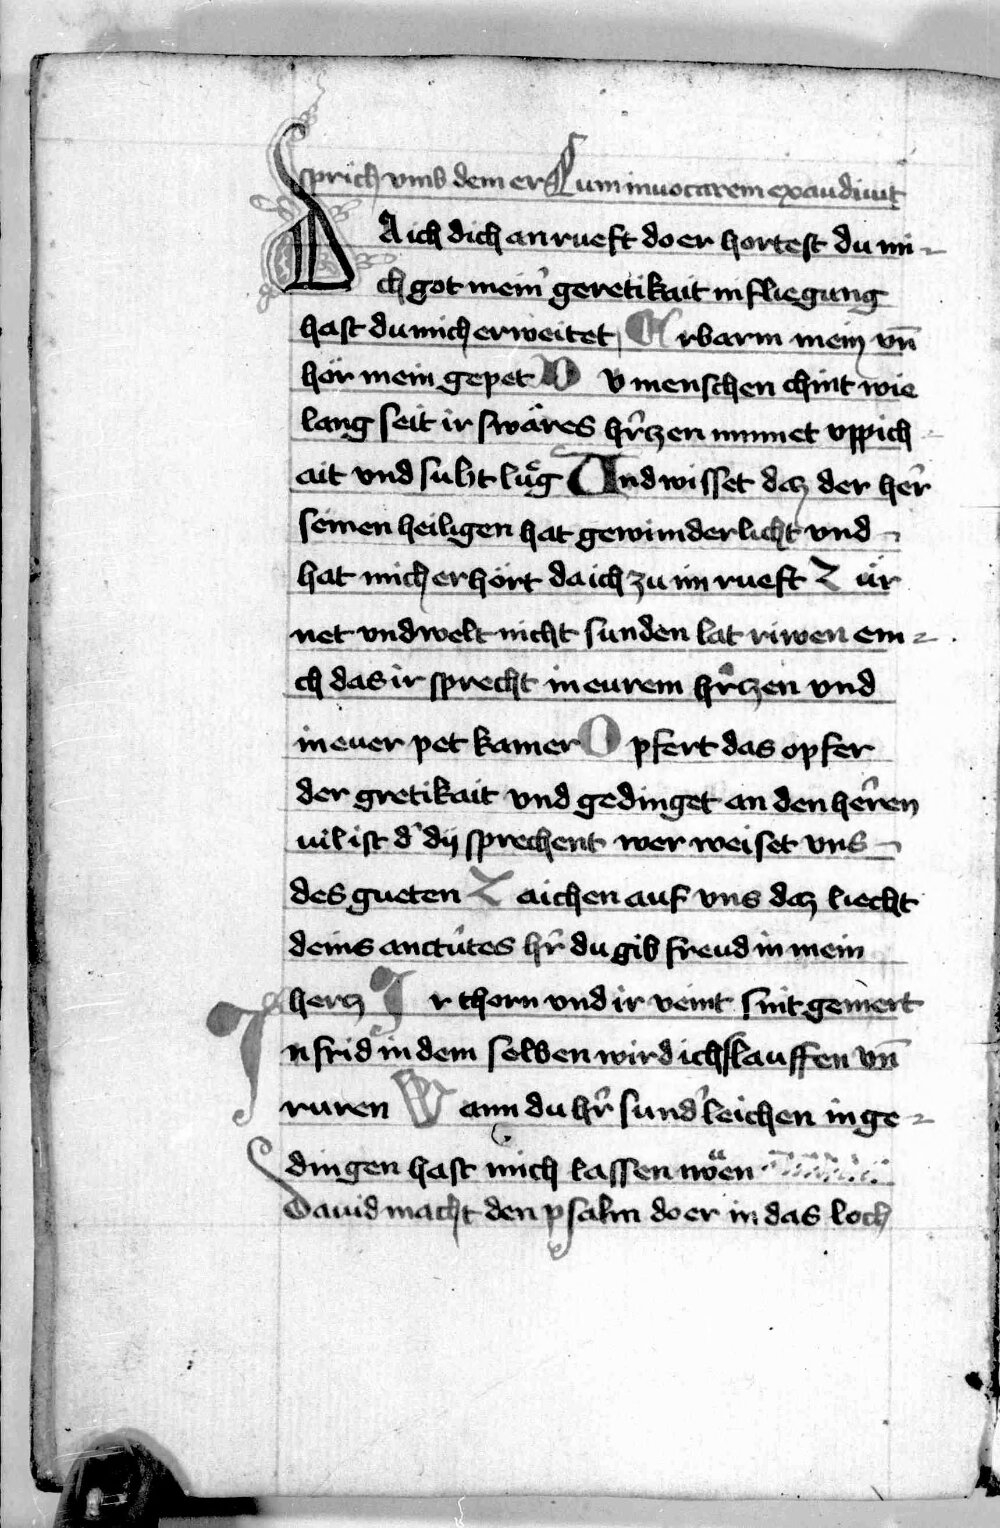 sprich vmb dem er Cum inuocarem exaudiuit
DA ich dich an rueft do er hortest du mi-
ch got mein̉ geretikait in fliegung
hast du mich erweitet Erbarm mein vn̄
hör mein gepet O v menschen chint wie
lang seit ir swäres hr̉czen minnet vppich-
ait vnd suht lug Vnd wisset daz der her̉
seinen heiligen hat gewunderlicht vnd-
hat mich erhört da ich zu im rueft Zür
net vnd welt nicht sunden lat riwen eu-
ch das ir sprecht in eurem hr̉czen vnd
in euer pet kamer Opfert das opfer
der gretikait vnd gedinget an den her̉en
vil ist d̉ dij sprechent wer weiset vns-
des gueten Zaichen auf vns daz liecht
deins anctlutes hr̉ du gib freud in mein
hercz Ir chorn vnd ir veint sint gemert
In frid in dem selben wird ich slauffen vn̄
ruren Wann du hr̉ sund̉leichen in ge-
dingen hast mich lassen
Dauid macht den psalm do er in das loch